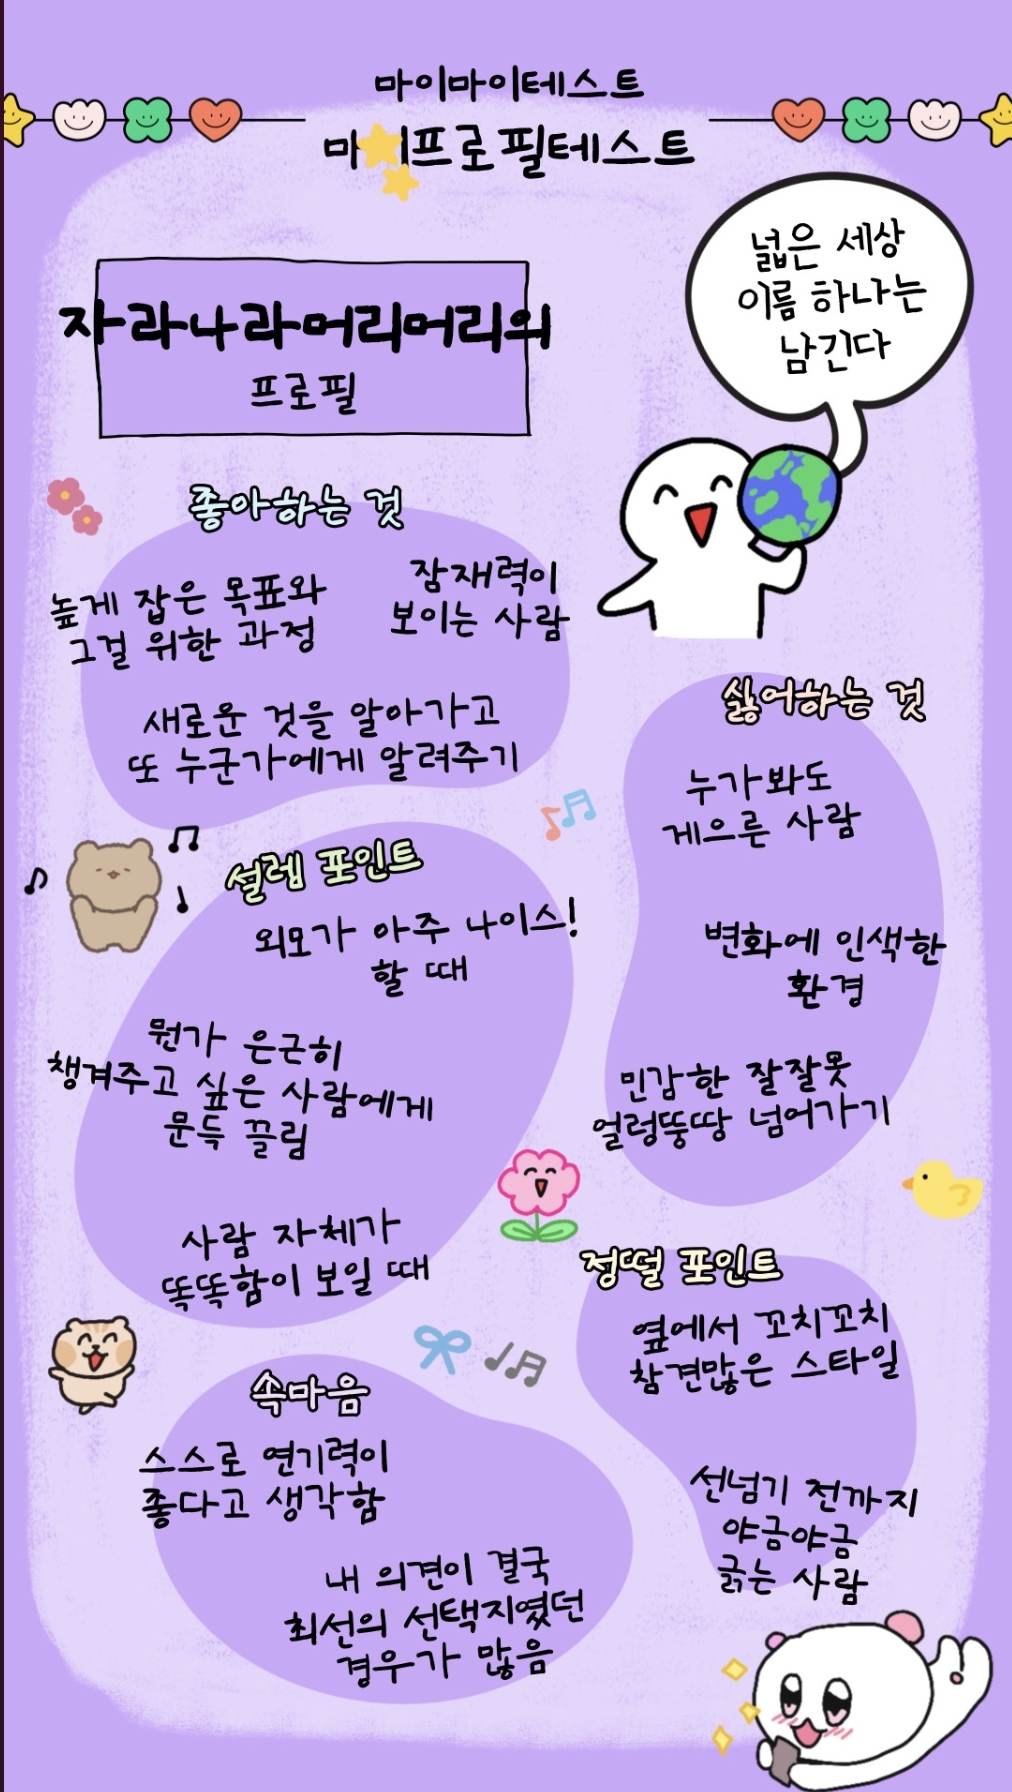 마이마이테스트
마이프로필테스트
넓은 세상
이름 하나는
남긴다
자라나라머리머리의
프로필
좋아하는 것
높게 잡은 목표와
그걸 위한 과정
잠재력이
보이는 사람
새로운 것을 알아가고
또 누군가에게 알려주기
싫어하는 것
누가봐도
게으른 사람
변화에 인색한
환경
민감한 잘잘못
얼렁뚱땅 넘어가기
설렘 포인트
외모가 아주 나이스!
할 때
뭔가 은근히
챙겨주고 싶은 사람에게
문득 끌림
사람 자체가
똑똑함이 보일 때
정떨 포인트
옆에서 꼬치꼬치
참견많은 스타일
선넘기 전까지
야금야금
긁는 사람
속마음
스스로 연기력이
좋다고 생각함
내 의견이 결국
최선의 선택지였던
경우가 많음